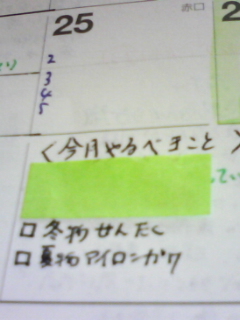 赤口
25
2
3
4
5
<今月やるべきこと>
□ 冬物せんたく
□ 夏物アイロンがけ